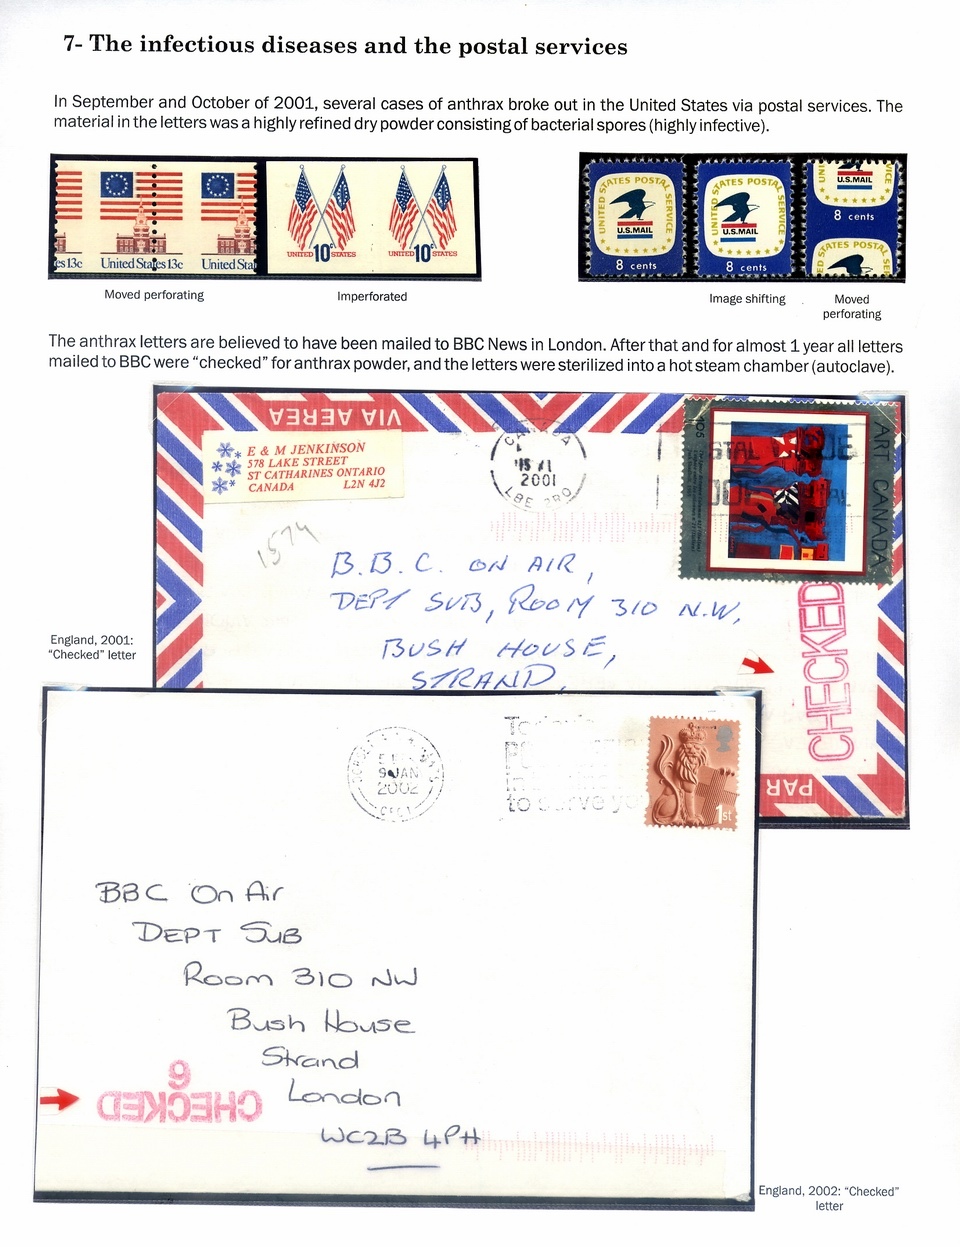 7- The infectious diseases and the postal services
In September and October of 2001, several cases of anthrax broke out in the United States via postal services. The
material in the letters was a highly refined dry powder consisting of bacterial spores (highly infective).
es 13c United States 13c United Sta
10c 10c
UNITED STATES UNITED STATES
UNITED STATES POSTAL SERVICE
U.S.MAIL
8 cents
UNITED STATES POSTAL SERVICE
U.S.MAIL
8 cents
U.S.MAIL
8 cents
STATES POSTAL
Moved perforating
Imperforated
Image shifting
Moved
perforating
The anthrax letters are believed to have been mailed to BBC News in London. After that and for almost 1 year all letters
mailed to BBC were “checked” for anthrax powder, and the letters were sterilized into a hot steam chamber (autoclave).
VIA AEREA
E & M JENKINSON
578 LAKE STREET
ST CATHARINES ONTARIO
CANADA L2N 4J2
CANADA
2001
ART CANADA
105
1574
B.B.C. ON AIR,
DEPT SUB, ROOM 310 N.W,
BUSH HOUSE,
STRAND.
CHECKED
PAR
England, 2001:
“Checked” letter
9 JAN
2002
to serve
1st
BBC On Air
DEPT SUB
Room 310 NW
Bush House
Strand
London
WC2B 4PH
CHECKED
6
England, 2002: “Checked”
letter